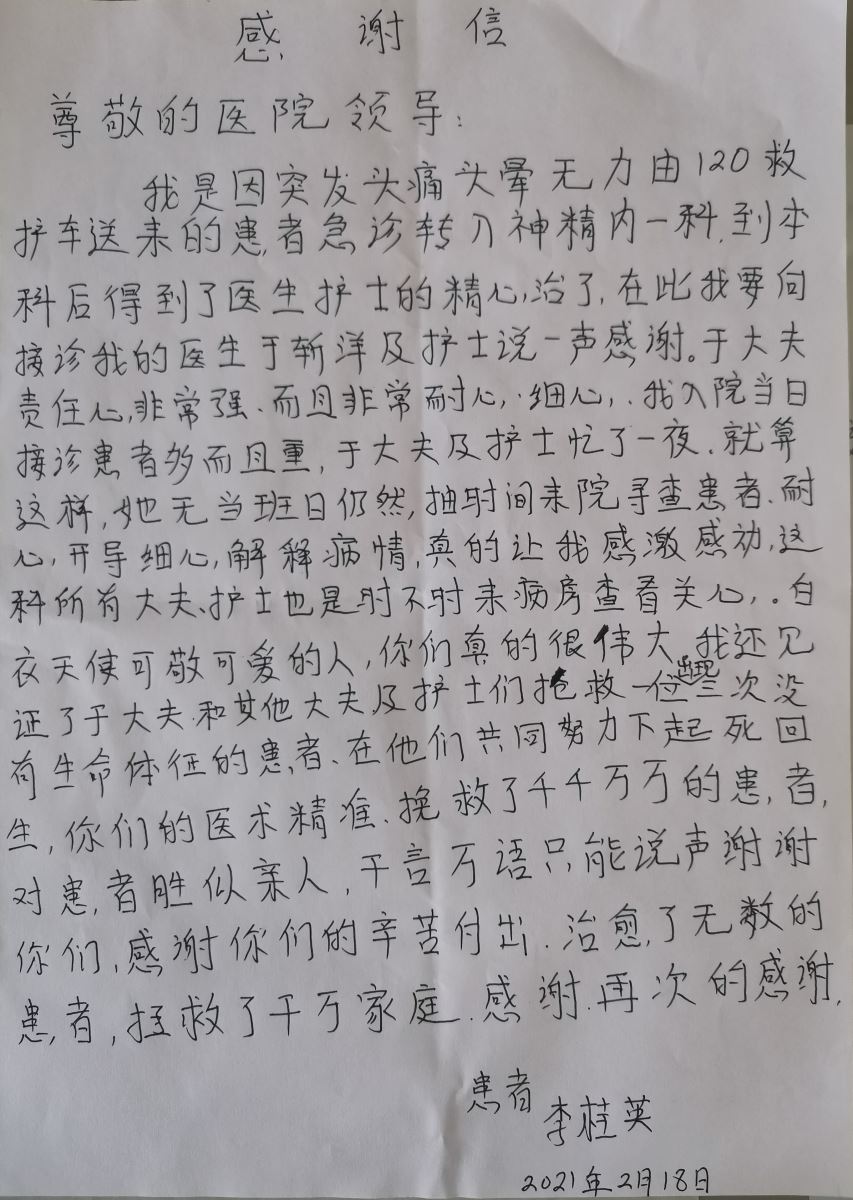 感谢信
尊敬的医院领导：
我是因突发头痛头晕无力由120救
护车送来的患者急诊转入神精内一科，到本
科后得到了医生护士的精心治了，在此我要向
接诊我的医生于斩洋及护士说一声感谢。于大夫
责任心非常强、而且非常耐心，细心，.我入院当日
接诊患者多而且重，于大夫及护士忙了一夜.就算
这样，她无当班日仍然，抽时间来院寻查患者、耐
心，开导细心，解释病情，真的让我感激感动，这
科所有大夫、护士也是时不时来病房查看关心，.白
衣天使可敬可爱的人，你们真的很伟大，我还见
证了于大夫和其他大夫及护士们抢救一位三次没
有生命体征的患者、在他们共同努力下起死回
生，你们的医术精准、挽救了千千万万的患者，
对患者胜似亲人，千言万语只能说声谢谢
你们，感谢你们的辛苦付出.治愈了无数的
患者，拯救了千万家庭.感谢.再次的感谢.
患者
李桂英
2021年2月18日